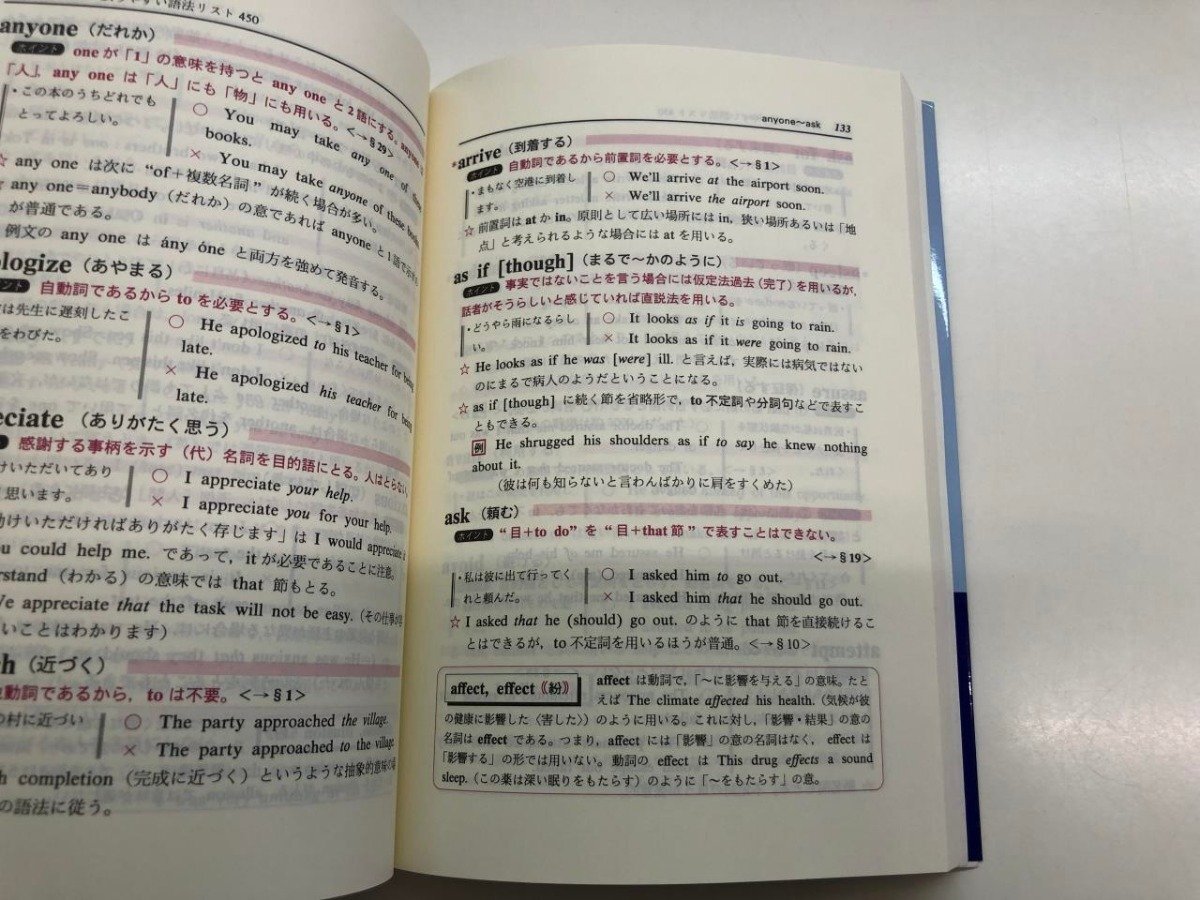 やすい語法リスト 450
anyone（だれか）
ポイント one が「1」の意味を持つと any one と2語にする。anyone は
「人」, any one は「人」にも「物」にも用いる。<→§29>
・この本のうちどれでも
とってよろしい。
○ You may take any one of these
books.
× You may take anyone of these books.
☆ any one は次に “of＋複数名詞” が続く場合が多い。
☆ any one＝anybody（だれか）の意であれば anyone と1語で
が普通である。
例文の any one は ány óne と両方を強めて発音する。
ologize（あやまる）
イント 自動詞であるから to を必要とする。<→§1>
は先生に遅刻したこ
をわびた。
○ He apologized to his teacher for being
late.
× He apologized his teacher for being
late.
eciate（ありがたく思う）
感謝する事柄を示す（代）名詞を目的語にとる。人はとらない。
けいただいてあり
思います。
○ I appreciate your help.
× I appreciate you for your help.
助けいただければありがたく存じます」は I would appreciate it
ou could help me. であって，it が必要であることに注意。
rstand（わかる）の意味では that 節もとる。
We appreciate that the task will not be easy.（その仕事が容
いことはわかります）
ch（近づく）
動詞であるから，to は不要。<→§1>
の村に近づい
○ The party approached the village.
× The party approached to the village.
ch completion（完成に近づく）というような抽象的意味の
の語法に従う。
anyone～ask 133
*arrive（到着する）
ポイント 自動詞であるから前置詞を必要とする。<→§1>
・まもなく空港に到着し
ます。
○ We'll arrive at the airport soon.
× We'll arrive the airport soon.
☆ 前置詞は at か in。原則として広い場所には in，狭い場所あるいは「地
点」と考えられるような場合には at を用いる。
as if [though]（まるで～かのように）
ポイント 事実ではないことを言う場合には仮定法過去（完了）を用いるが，
話者がそうらしいと感じていれば直説法を用いる。
・どうやら雨になるらし
い。
○ It looks as if it is going to rain.
× It looks as if it were going to rain.
☆ He looks as if he was [were] ill. と言えば，実際には病気ではない
のにまるで病人のようだということになる。
☆ as if [though] に続く節を省略形で，to 不定詞や分詞句などで表すこ
ともできる。
例 He shrugged his shoulders as if to say he knew nothing
about it.
（彼は何も知らないと言わんばかりに肩をすくめた）
ask（頼む）
ポイント “目＋to do” を “目＋that 節” で表すことはできない。
<→§19>
・私は彼に出て行ってく
れと頼んだ。
○ I asked him to go out.
× I asked him that he should go out.
☆ I asked that he (should) go out. のように that 節を直接続けるこ
とはできるが，to 不定詞を用いるほうが普通。<→§10>
affect, effect《紛》
affect は動詞で，「～に影響を与える」の意味。たと
えば The climate affected his health.（気候が彼
の健康に影響した〈害した〉）のように用いる。これに対し，「影響・結果」の意の
名詞は effect である。つまり，affect には「影響」の意の名詞はなく， effect は
「影響する」の形では用いない。動詞の effect は This drug effects a sound
sleep.（この薬は深い眠りをもたらす）のように「～をもたらす」の意。